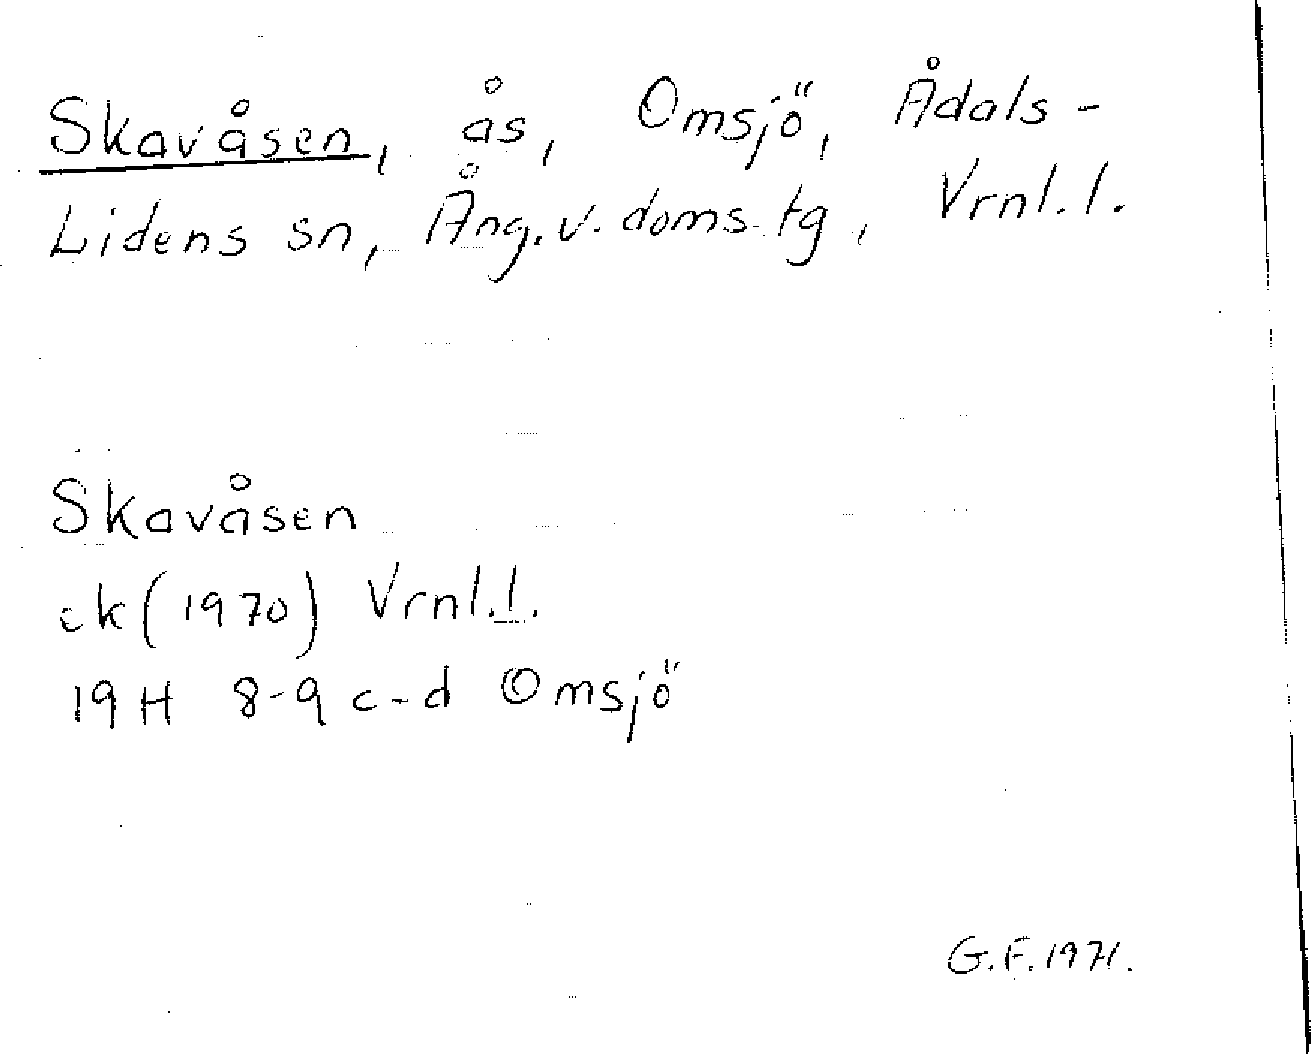 Skavåsen, ås, Omsjö, Ådals-
Lidens sn, Ång. v. doms. tg, Vrnl. l.
Skavåsen
ek (1970) Vrnl. l.
19 H 8-9 c-d Omsjö
G. F. 1971.